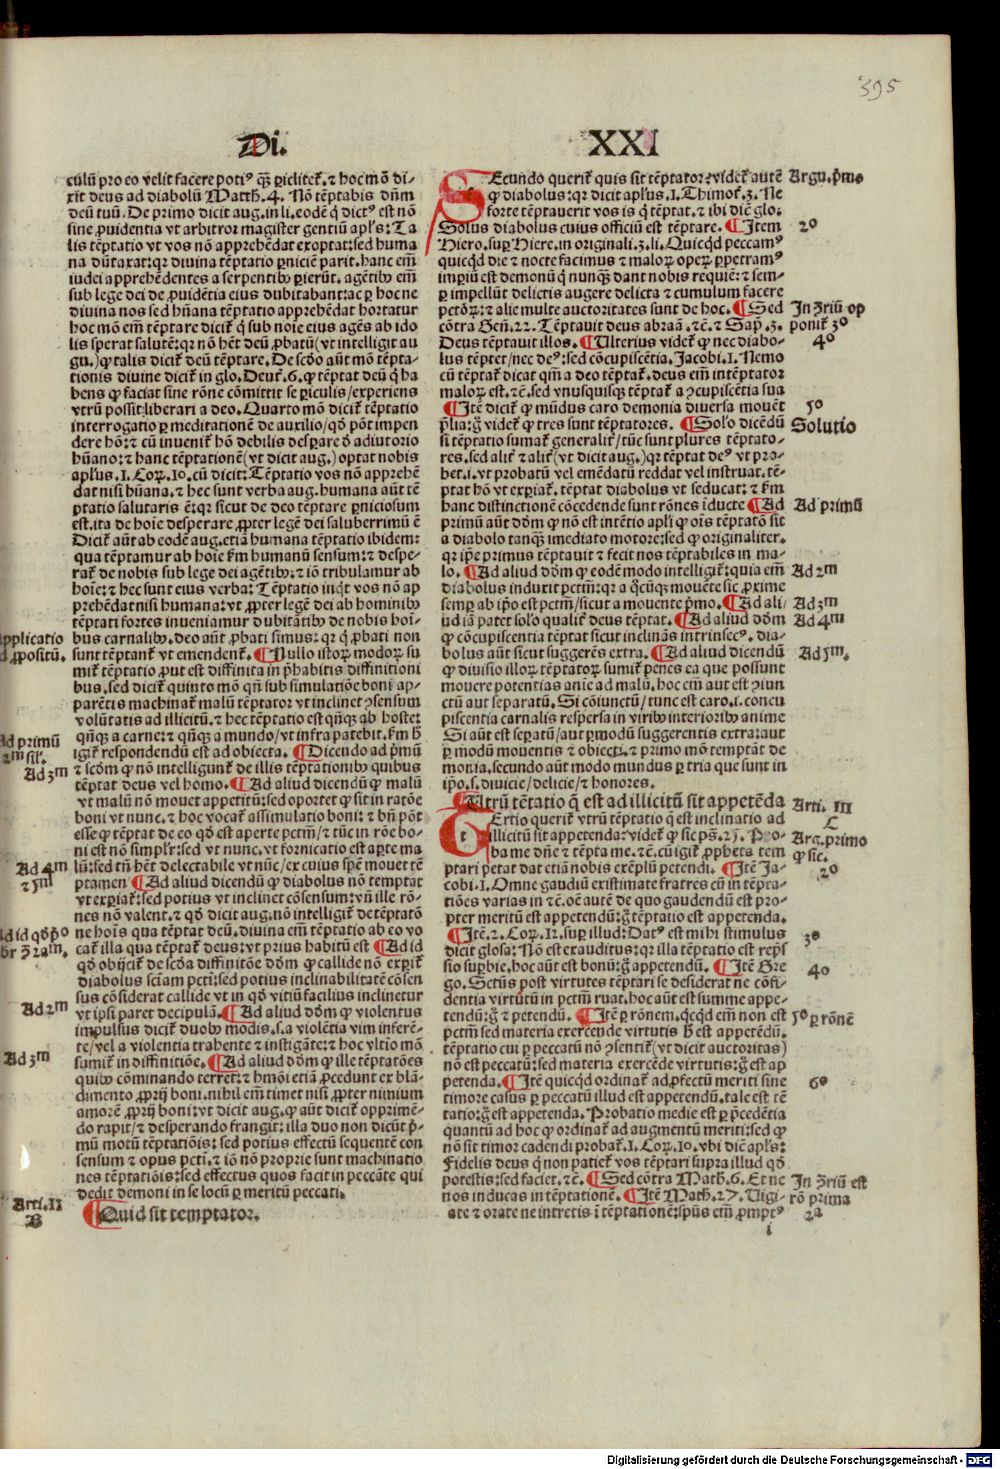 395
Di.
XXI
culũ pro eo velit facere poti⁹ q̃ꝫ ꝑiclitet̃. ⁊ hoc mõ di-
xit deus ad diabolũ Matth. 4. Nõ tẽptabis dñm
deũ tuũ. De primo dicit aug. in li. eodẽ ꝙ dict⁹ est nõ
sine ꝓuidentia vt arbitror magister gentiũ apl's: Ta
lis tẽptatio vt vos nõ apprehẽdat exoptat: sed huma
na dũtaxat: qꝛ diuina tẽptatio ꝑniciẽ parit. hanc em̃
iudei apprehẽdentes a serpentibꝰ ꝑierũt. agẽtibꝰ em̃
sub lege dei de ꝓuidẽtia eius dubitabant: ac ꝑ hoc ne
diuina nos sed hũana tẽptatio apprehẽdat hortatur
hoc mõ em̃ tẽptare dicit̃ ꝙ sub noĩe eius agẽs ab ido
lis sperat salutẽ: qꝛ nõ hẽt deũ ꝓbatũ (vt intelligit au
gu.) ꝙ talis dicit̃ deũ tẽptare. De scd̃o aũt mõ tẽpta-
tionis diuine dicit̃ in glo. Deut̃. 6. ꝙ tẽptat deũ q̃ ha
bens ꝙ faciat sine rõne cõmittit se ꝑiculis / experiens
vtrũ possit liberari a deo. Quarto mõ dicit̃ tẽptatio
interrogatio ꝑ meditationẽ de auxilio / qd̃ põt impen
dere hõĩ: ⁊ cũ inuenit̃ hõ debilis desperare d̃ adiutorio
hũano: ⁊ hanc tẽptationẽ (vt dicit aug.) optat nobis
apl'us. 1. Coꝝ. 10. cũ dicit: Tẽptatio vos nõ apprehẽ
dat nisi hũana. ⁊ hec sunt verba aug. humana aũt tẽ
ptatio salutaris ẽ: qꝛ sicut de deo tẽptare ꝑniciosum
est. ita de hoĩe desperare ꝓpter legẽ dei saluberrimũ ẽ
Dicit̃ aũt ab eodẽ aug. etiã humana tẽptatio ibidem:
qua tẽptamur ab hoĩe km̃ humanũ sensum: ⁊ despe-
rat̃ de nobis sub lege dei agẽtibꝰ: ⁊ iõ tribulamur ab
hoĩe: ⁊ hec sunt eius verba: Tẽptatio inq̃t vos nõ ap
prehẽdat nisi humana: vt ꝓpter legẽ dei ab hominibꝰ
tẽptati fortes inueniamur dubitãtibꝰ de nobis hoĩ-
bus carnalibꝰ. deo aũt ꝓbati simus: qꝛ q̃ ꝓbati non
sunt tẽptant̃ vt emendent̃. ¶ Nullo istoꝝ modoꝝ su
mit̃ tẽptatio ꝓut est diffinita in p̃habitis diffinitioni
bus. sed dicit̃ quinto mõ qñ sub simulatiõe boni ap-
parẽtis machinat̃ malũ tẽptator vt inclinet ꝯsensum
volũtatis ad illicitũ. ⁊ hec tẽptatio est qñqꝫ ab hoste:
qñqꝫ a carne: ⁊ qñqꝫ a mundo / vt infra patebit. km̃ h̃
igit̃ respondendũ est ad obiecta. ¶ Dicendo ad p̃mũ
⁊ scd̃m ꝙ nõ intelligunt̃ de illis tẽptationibꝰ quibus
tẽptat deus vel homo. ¶ Ad aliud dicendũ ꝙ malũ
vt malũ nõ mouet appetitũ: sed oportet ꝙ sit in ratõe
boni vt nunc. ⁊ hoc vocat̃ assimulatio boni: ⁊ bñ põt
esse ꝙ tẽptat de eo qd̃ est aperte pctm̃ / ⁊ tũc in rõe bo-
ni est nõ simpl'r: sed vt nunc. vt fornicatio est aꝑte ma
lũ: sed tñ hẽt delectabile vt nũc / ex cuius spẽ mouet tẽ
ptamen ¶ Ad aliud dicendũ ꝙ diabolus nõ temptat
vt exꝑiat̃: sed potius vt inclinet cõsensum: vñ ille rõ-
nes nõ valent. ⁊ qd̃ dicit aug. nõ intelligit̃ de tẽptatõ
ne hoĩs qua tẽptat deũ. diuina em̃ tẽptatio ab eo vo
cat̃ illa qua tẽptat̃ deus: vt prius habitũ est ¶ Ad id
qd̃ obijcit̃ de scd̃a diffinitõe dd̃m ꝙ callide nõ exꝑit̃
diabolus sciam pcti: sed potius inclinabilitatẽ cõsen
sus cõsiderat callide vt in qd̃ vitiũ facilius inclinetur
vt ipsi paret decipulã. ¶ Ad aliud dd̃m ꝙ violentus
impulsus dicit̃ duobꝰ modis. s. a violẽtia vim inferẽ-
te / vel a violentia trahente ⁊ instigãte: ⁊ hoc vltĩo mõ
sumit̃ in diffinitiõe. ¶ Ad aliud dd̃m ꝙ ille tẽptatões
quibꝰ cõminando terret: ⁊ hmõi etiã ꝓcedunt ex blã-
dimento ꝓprij boni. nihil em̃ timet nisi ꝓpter nimium
amorẽ ꝓprij boni: vt dicit aug. ꝙ aũt dicit̃ opprimẽ-
do rapit / ⁊ desperando frangit: illa duo non dicũt p̃-
mũ motũ tẽptatiõis: sed potius effectũ sequentẽ con
sensum ⁊ opus pcti. ⁊ iõ nõ proprie sunt machinatio
nes tẽptatiõis: sed effectus quos facit in peccãte qui
dedit demoni in se locũ ꝑ meritũ peccati.
¶ Quid sit temptator.
applicatio
ad ꝓpositũ.
Ad primũ
2m sil'.
Ad 3m
Ad 4m
⁊ 5m
Ad id qd̃ p̃o
obr 2am.
Ad 2m
Ad 3m
Arti. II
B
SEcundo querit̃ quis sit tẽptator: videt̃ autẽ
ꝙ diabolus: qꝛ dicit apl'us. 1. Thimot̃. 3. Ne
forte tẽptauerit vos is q̃ tẽptat. ⁊ ibi dic̃ glo:
Solus diabolus cuius officiũ est tẽptare. ¶ Item
Hiero. suꝑ Hiere. in originali. 3. li. Quicq̃d peccam⁹
quicq̃d die ⁊ nocte facimus ⁊ maloꝝ opeꝝ ꝑpetram⁹
imꝑiũ est demonũ q̃ nunqꝫ dant nobis requiẽ: ⁊ sem-
ꝑ impellũt delictis augere delicta ⁊ cumulum facere
pctõꝝ: ⁊ alie multe auctoritates sunt de hoc. ¶ Sed
cõtra Geñ. 22. Tẽptauit deus abraã. ⁊c̃. ⁊ Sap̃. 3.
Deus tẽptauit illos. ¶ Ulterius videt̃ ꝙ nec diabo-
lus tẽptet / nec de⁹: sed cõcupiscẽtia. Jacobi. 1. Nemo
cũ tẽptat̃ dicat qm̃ a deo tẽptat̃. deus em̃ intẽptator
maloꝝ est. ⁊c̃. sed vnusquisqꝫ tẽptat̃ a ꝯcupiscẽtia sua
¶ Itẽ dicit̃ ꝙ mũdus caro demonia diuersa mouẽt
p̃lia: g̃ videt̃ ꝙ tres sunt tẽptatores. ¶ Solo dicẽdũ
si tẽptatio sumat̃ generalit̃ / tũc sunt plures tẽptato-
res. sed alit̃ ⁊ alit̃ (vt dicit aug.) qꝛ tẽptat de⁹ vt pro-
bet. i. vt probatũ vel emẽdatũ reddat vel instruat. tẽ-
ptat hõ vt exꝑiat̃. tẽptat diabolus vt seducat: ⁊ km̃
hanc distinctionẽ cõcedende sunt rõnes ĩducte ¶ Ad
primũ aũt dd̃m ꝙ nõ est intẽtio apl'i ꝙ oĩs tẽptatõ sit
a diabolo tanqꝫ imediato motore: sed ꝙ originaliter.
qꝛ ip̃e primus tẽptauit ⁊ fecit nos tẽptabiles in ma-
lo. ¶ Ad aliud dd̃m ꝙ eodẽ modo intelligit̃: quia em̃
diabolus induxit pctm̃: qꝛ a q̃cũqꝫ mouẽte sic ꝓxime
semꝑ ab ip̃o est pctm̃ / sicut a mouente p̃mo. ¶ Ad ali/
ud iã patet solo qualit̃ deus tẽptat. ¶ Ad aliud dd̃m
ꝙ cõcupiscentia tẽptat sicut inclinãs intrinsec⁹. dia-
bolus aũt sicut suggerẽs extra. ¶ Ad aliud dicendũ
ꝙ diuisio illoꝝ tẽptatoꝝ sumit̃ penes ea que possunt
mouere potentias anĩe ad malũ. hoc em̃ aut est ꝯiun
ctũ aut separatũ. Si cõiunctũ / tunc est caro. i. concu
piscentia carnalis respersa in viribꝰ interioribꝰ anime
Si aũt est seꝑatũ / aut ꝑ modũ suggerentis extra: aut
ꝑ modũ mouentis ⁊ obiecti. ⁊ primo mõ temptãt de
monia. secundo aũt modo mundus ꝑ tria que sunt in
ip̃o. s. diuicie / delicie / ⁊ honores.
¶ Utrũ tẽtatio q̃ est ad illicitũ sit appetẽda
TErtio querit̃ vtrũ tẽptatio q̃ est inclinatio ad
illicitũ sit appetenda: videt̃ ꝙ sic ps̃. 25. Pro-
ba me dñe ⁊ tẽpta me. ⁊c̃. cũ igit̃ ꝓpheta tem
ptari petat dat etiã nobis exẽplũ petendi. ¶ Itẽ Ja-
cobi. 1. Omne gaudiũ existimate fratres cũ in tẽpta-
tiões varias in ⁊c̃. oẽ autẽ de quo gaudendũ est pro-
pter meritũ est appetendũ: g̃ tẽptatio est appetenda.
¶ Itẽ. 2. Coꝝ. 12. suꝑ illud: Dat⁹ est mihi stimulus
dicit glosa: Nõ est exauditus: qꝛ illa tẽptatio est rep̃s
sio suꝑbie. hoc aũt est bonũ: g̃ appetendũ. ¶ Itẽ Gre
go. Sctũs post virtutes tẽptari se desiderat ne cõfi-
dentia virtutũ in pctm̃ ruat. hoc aũt est summe appe-
tendũ: g̃ ⁊ petendũ. ¶ Itẽ ꝑ rõnem. q̃cq̃d em̃ non est
pctm̃ sed materia exercende virtutis h̃ est appetẽdũ.
tẽptatio cui ꝑ peccatũ nõ ꝯsentit̃ (vt dicit auctoritas)
nõ est peccatũ: sed materia exercẽde virtutis: g̃ est ap
petenda. ¶ Itẽ quicq̃d ordinat̃ ad ꝓfectũ meriti sine
timore casus ꝑ peccatũ illud est appetendũ. tale est tẽ
tatio: g̃ est appetenda. Probatio medie est ꝑ p̃cedẽtia
quantũ ad hoc ꝙ ordinat̃ ad augmentũ meriti: sed ꝙ
nõ sit timor cadendi probat̃. 1. Coꝝ. 10. vbi dic̃ apl's:
Fidelis deus q̃ non patiet̃ vos tẽptari supra illud qd̃
potestis: sed faciet. ⁊c̃. ¶ Sed cõtra Math. 6. Et ne
nos inducas in tẽptationẽ. ¶ Itẽ Math. 27. Vigi-
ate ⁊ orate ne intretis ĩ tẽptationẽ: spũs em̃ ꝓmpt⁹
i
Argu. p̃mo
2º
In ꝯriũ op
ponit̃ 3º
4º
5º
Solutio
Ad primũ
Ad 2m
Ad 3m
Ad 4m
Ad 5m.
Arti. III
C
Arg. primo
ꝙ sic.
2º
3º
4º
5º ꝑ rõnẽ
6º
In ꝯriũ est
rõ prima
2a
Digitalisierung gefördert durch die Deutsche Forschungsgemeinschaft - DFG